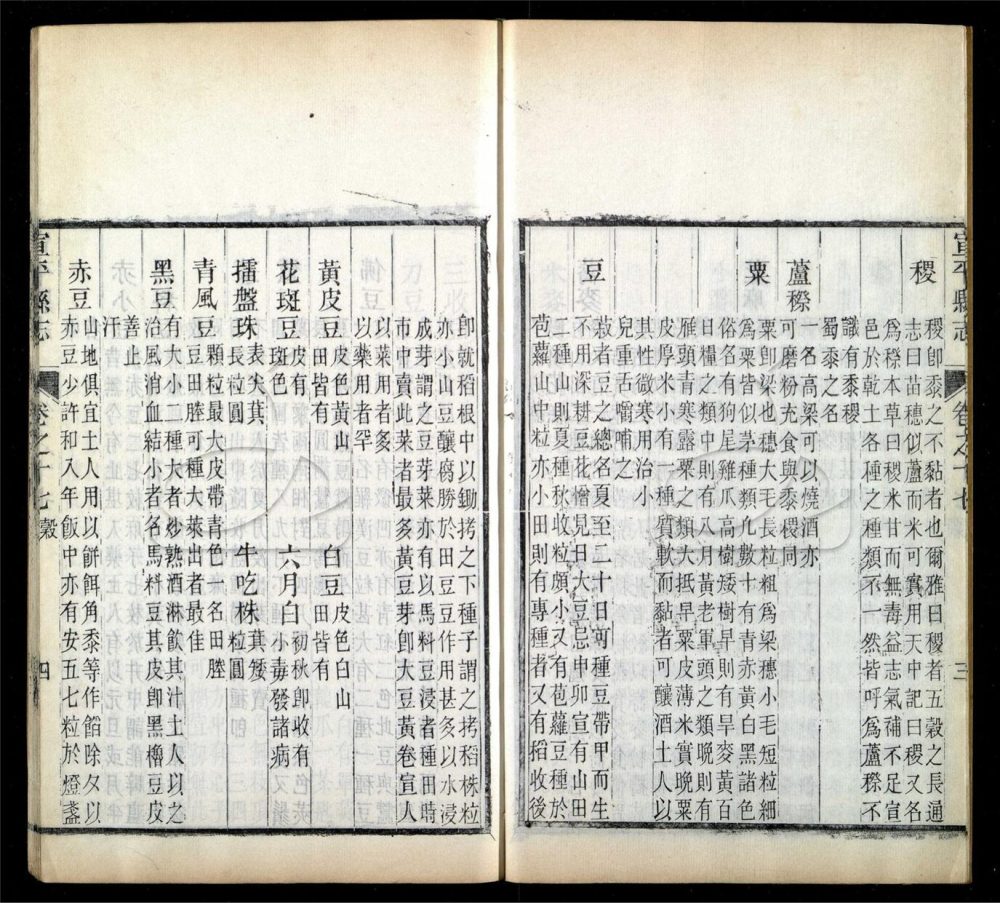 宣平縣志
卷之十七
三
稷
稷卽黍之不黏者也爾雅曰稷者五穀之長通
志曰苗穗似蘆而米可實用天中記曰稷又名
爲穄本草曰稷米甘而無毒益志氣補不足宣
邑於乾土各種之種類不一然皆呼爲蘆穄不
識有黍稷
蜀黍之名
蘆穄
一名高粱可以燒酒亦
可磨粉充食與黍稷同
粟
粟卽粱也穗大毛長粒粗爲粱穗小毛短粒細
爲粟皆似茅種類凢數十有青赤黃白黑諸色
俗名有狗尾雞瓜高樹矮樹早則有旱麥黃百
日糧之類中則有八月黃老軍頭之類晚則有
雁頭青寒露粟之類大抵早粟皮薄米實晚粟
皮厚米少有一種質軟而黏者可釀酒土人以
其性微寒用治小
兒重舌嚼哺之
豆
菽者豆之總名夏至二十日可種豆帶甲而生
不用深耕豆花憎見日大豆忌申卯宣有山田
二種山則夏種秋收粒頗小又有苞蘿豆種於
苞蘿山中粒亦小田則有專種者又有稻收後
卽就稻根中以鋤拷之下種子謂之拷稻株粒
亦小山豆釀腐勝於田豆豆作用甚多以水浸
成芽謂之豆芽菜亦有以馬料豆浸者種田時
市中賣此菜者最多黃豆芽卽大豆黃卷宣人
以菜用者多
以藥用者罕
黃皮豆
皮色黃山
田皆有
白豆
皮色白山
田皆有
花斑豆
皮有
斑色
六月白
初秋卽收有
毒發諸病
擂盤珠
表矣萁
長粒圓
牛吃株
萁矮
粒圓
青風豆
顆粒最大皮帶青色一名田塍
豆田塍可種大萊出者最佳
黑豆
有大小二種大者炒熟酒淋飲其汁土人以之
治風消血結小者名馬料豆其皮卽黑櫓豆皮
善止
汗
赤豆
山地俱宜土人用以餅餌角黍等作餡除夕以
赤豆少許和入年飯中亦有安五七粒於燈盞
宣平縣志
卷之十七
穀
四